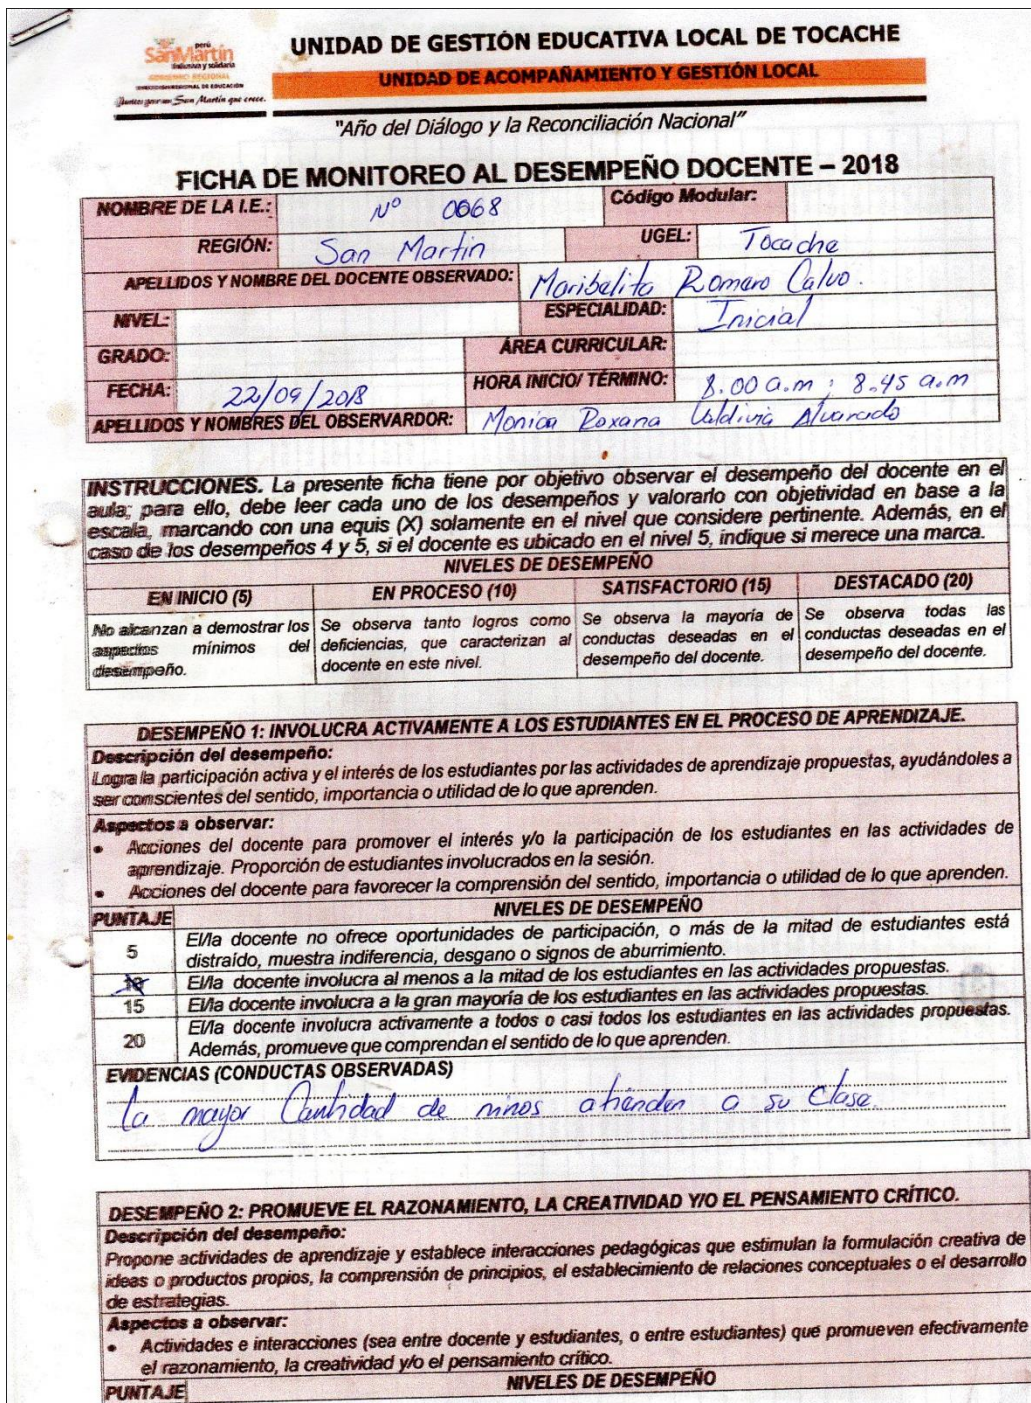 perú
SanMartín
inclusiva y solidaria
GOBIERNO REGIONAL
DIRECCIÓN REGIONAL DE EDUCACIÓN
San Martín que crece.
UNIDAD DE GESTIÓN EDUCATIVA LOCAL DE TOCACHE
UNIDAD DE ACOMPAÑAMIENTO Y GESTIÓN LOCAL
"Año del Diálogo y la Reconciliación Nacional"
FICHA DE MONITOREO AL DESEMPEÑO DOCENTE – 2018
NOMBRE DE LA I.E.: Nº 0068 Código Modular:
REGIÓN: San Martin UGEL: Tocache
APELLIDOS Y NOMBRE DEL DOCENTE OBSERVADO: Maribelita Romero Calvo.
NIVEL: ESPECIALIDAD: Inicial
GRADO: ÁREA CURRICULAR:
FECHA: 22/09/2018 HORA INICIO/ TÉRMINO: 8.00 a.m ; 8.45 a.m
APELLIDOS Y NOMBRES DEL OBSERVARDOR: Monica Roxana Valdivia Alvarado
INSTRUCCIONES. La presente ficha tiene por objetivo observar el desempeño del docente en el
aula; para ello, debe leer cada uno de los desempeños y valorarlo con objetividad en base a la
escala, marcando con una equis (X) solamente en el nivel que considere pertinente. Además, en el
caso de los desempeños 4 y 5, si el docente es ubicado en el nivel 5, indique si merece una marca.
NIVELES DE DESEMPEÑO
EN INICIO (5) EN PROCESO (10) SATISFACTORIO (15) DESTACADO (20)
No alcanzan a demostrar los aspectos mínimos del desempeño.
Se observa tanto logros como deficiencias, que caracterizan al docente en este nivel.
Se observa la mayoría de conductas deseadas en el desempeño del docente.
Se observa todas las conductas deseadas en el desempeño del docente.
DESEMPEÑO 1: INVOLUCRA ACTIVAMENTE A LOS ESTUDIANTES EN EL PROCESO DE APRENDIZAJE.
Descripción del desempeño:
Logra la participación activa y el interés de los estudiantes por las actividades de aprendizaje propuestas, ayudándoles a
ser conscientes del sentido, importancia o utilidad de lo que aprenden.
Aspectos a observar:
• Acciones del docente para promover el interés y/o la participación de los estudiantes en las actividades de
aprendizaje. Proporción de estudiantes involucrados en la sesión.
• Acciones del docente para favorecer la comprensión del sentido, importancia o utilidad de lo que aprenden.
PUNTAJE NIVELES DE DESEMPEÑO
5 El/la docente no ofrece oportunidades de participación, o más de la mitad de estudiantes está
distraído, muestra indiferencia, desgano o signos de aburrimiento.
10 El/la docente involucra al menos a la mitad de los estudiantes en las actividades propuestas.
15 El/la docente involucra a la gran mayoría de los estudiantes en las actividades propuestas.
20 El/la docente involucra activamente a todos o casi todos los estudiantes en las actividades propuestas.
Además, promueve que comprendan el sentido de lo que aprenden.
EVIDENCIAS (CONDUCTAS OBSERVADAS)
La mayor Cantidad de ninos atienden a su Clase.
DESEMPEÑO 2: PROMUEVE EL RAZONAMIENTO, LA CREATIVIDAD Y/O EL PENSAMIENTO CRÍTICO.
Descripción del desempeño:
Propone actividades de aprendizaje y establece interacciones pedagógicas que estimulan la formulación creativa de
ideas o productos propios, la comprensión de principios, el establecimiento de relaciones conceptuales o el desarrollo
de estrategias.
Aspectos a observar:
• Actividades e interacciones (sea entre docente y estudiantes, o entre estudiantes) que promueven efectivamente
el razonamiento, la creatividad y/o el pensamiento crítico.
PUNTAJE NIVELES DE DESEMPEÑO